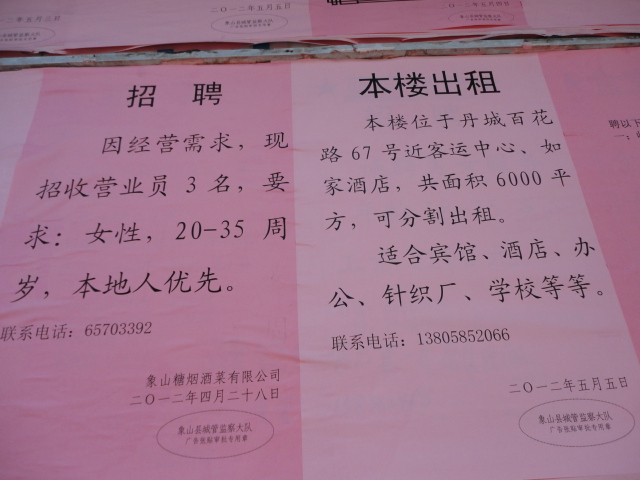 二〇一二年五月五日
象山县城管监察大队
招 聘
因经营需求，现
招收营业员 3 名，要
求：女性，20-35 周
岁，本地人优先。
联系电话：65703392
象山糖烟酒菜有限公司
二〇一二年四月二十八日
象山县城管监察大队
广告张贴审批专用章
本楼出租
本楼位于丹城百花
路 67 号近客运中心、如
家酒店，共面积 6000 平
方，可分割出租。
适合宾馆、酒店、办
公、针织厂、学校等等。
联系电话：13805852066
二〇一二年五月五日
象山县城管监察大队
广告张贴审批专用章
聘以下